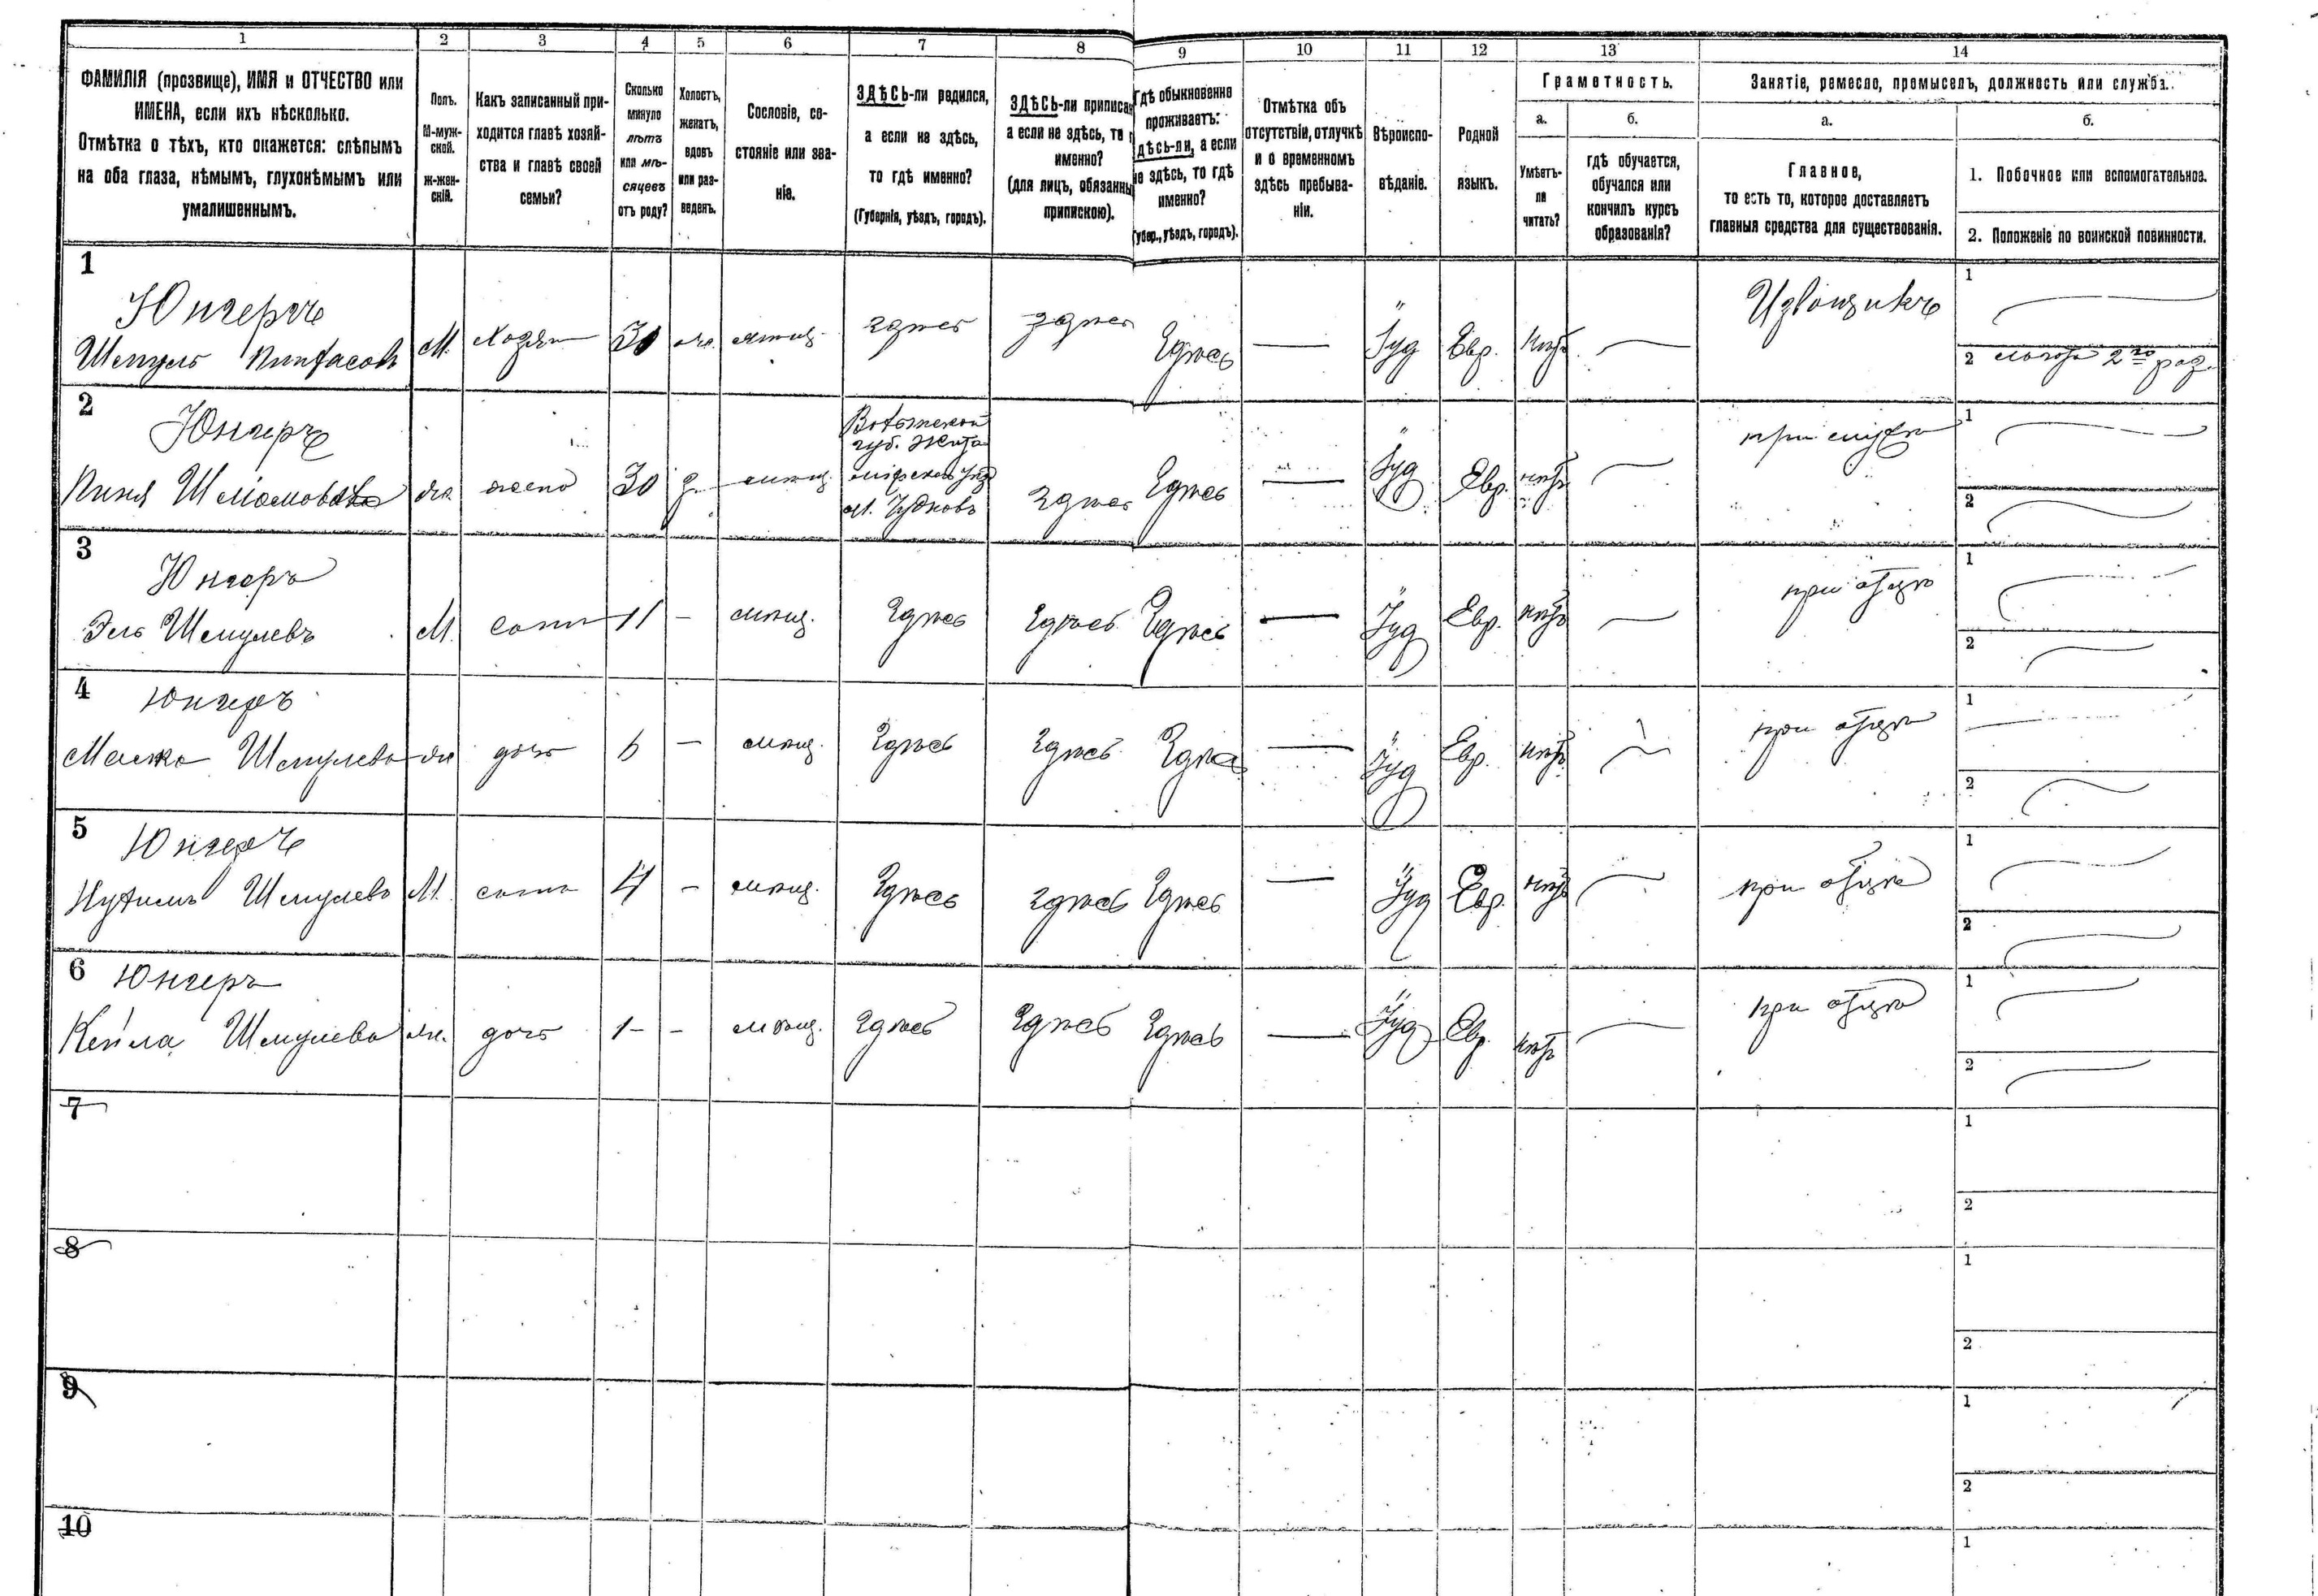 1 2 3 4 5 6 7 8 9 10 11 12 13 14
ФАМИЛІЯ (прозвище), ИМЯ и ОТЧЕСТВО или
ИМЕНА, если ихъ нѣсколько.
Отмѣтка о тѣхъ, кто окажется: слѣпымъ
на оба глаза, нѣмымъ, глухонѣмымъ или
умалишеннымъ.
Полъ.
М-муж-
ской.
Ж-жен-
скій.
Какъ записанный при-
ходится главѣ хозяй-
ства и главѣ своей
семьи?
Сколько
минуло
лѣтъ
или мѣ-
сяцевъ
отъ роду?
Холостъ,
женатъ,
вдовъ
или раз-
веденъ.
Сословіе, со-
стояніе или зва-
ніе.
ЗДѢСЬ-ли родился,
а если не здѣсь,
то гдѣ именно?
(Губернія, уѣздъ, городъ).
ЗДѢСЬ-ли приписа
а если не здѣсь, то г
именно?
(для лицъ, обязанны
припискою).
Гдѣ обыкновенно
проживаетъ:
дѣсь-ли, а если
не здѣсь, то гдѣ
именно?
(Губер., уѣздъ, городъ).
Отмѣтка объ
отсутствіи, отлучкѣ
и о временномъ
здѣсь пребыва-
ніи.
Вѣроиспо-
вѣданіе.
Родной
языкъ.
Грамотность.
а.
Умѣетъ-
ли
читать?
б.
гдѣ обучается,
обучался или
кончилъ курсъ
образованія?
Занятіе, ремесло, промыселъ, должность или служба.
а.
Главное,
то есть то, которое доставляетъ
главныя средства для существованія.
б.
1. Побочное или вспомогательное.
2. Положеніе по воинской повинности.
1
Юнгеръ
Шмуль Пинхасовъ М. Хозяин 30 мѣщ. здѣсь здѣсь Здѣсь — Іуд Евр. нѣтъ — Извощикъ
1
2 2го раз.
2
Юнгеръ
Волынской
губ. Жито
мірскаго уѣз
м. Чудновъ
жена 30 мѣщ. Здѣсь Здѣсь — Іуд Евр. нѣтъ — при мужѣ
1
2
3
Юнгеръ
Эль Шмулевъ М. сынъ 11 – мѣщ. Здѣсь Здѣсь Здѣсь — Іуд Евр. нѣтъ — при отцѣ
1
2
4
Юнгеръ
Шмулева ж дочь 6 – мѣщ. Здѣсь Здѣсь Здѣсь — Іуд Евр. нѣтъ — при отцѣ
1
2
5
Юнгеръ
Нухимъ Шмулевъ М. сынъ 4 – мѣщ. Здѣсь Здѣсь Здѣсь — Іуд Евр. нѣтъ — при отцѣ
1
2
6
Юнгеръ
Кейла Шмулева ж. дочь 1 – – мѣщ. Здѣсь Здѣсь Здѣсь — Іуд Евр. нѣтъ — при отцѣ
1
2
7
1
2
8
1
2
9
1
2
10
1